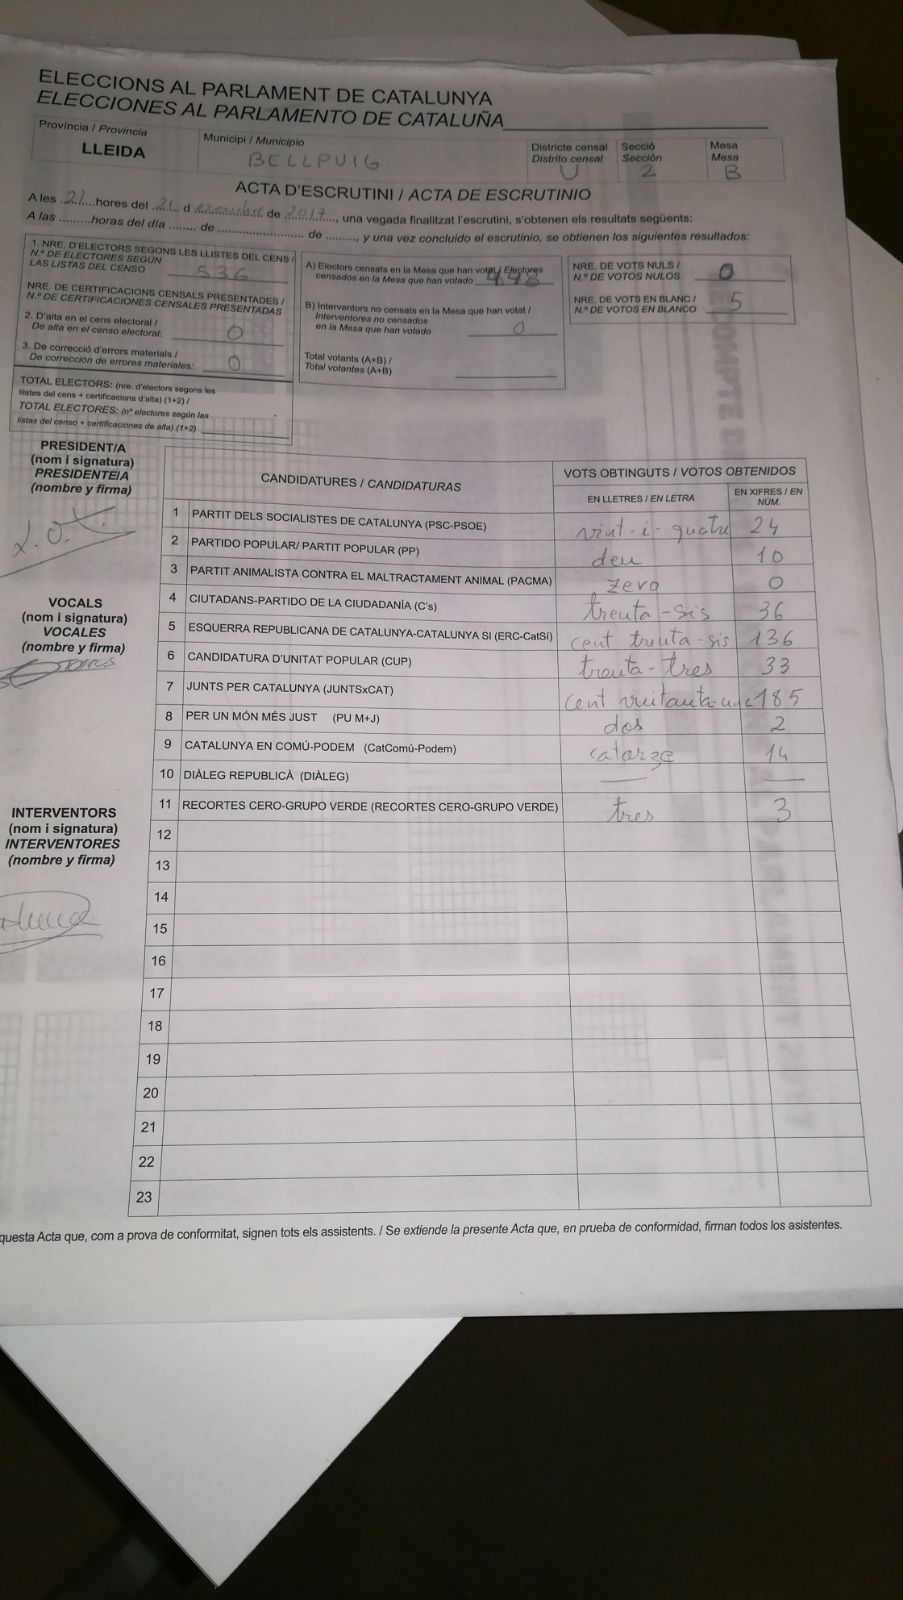 ELECCIONS AL PARLAMENT DE CATALUNYA
ELECCIONES AL PARLAMENTO DE CATALUÑA
Província / Provincia
LLEIDA
Municipi / Municipio
BELLPUIG
Districte censal
Distrito censal
U
Secció
Sección
2
Mesa
Mesa
B
ACTA D'ESCRUTINI / ACTA DE ESCRUTINIO
A les ..21....hores del .21.. d'desembre de .2017..., una vegada finalitzat l'escrutini, s'obtenen els resultats següents:
A las .........horas del día ........ de ......................... de ........., y una vez concluido el escrutinio, se obtienen los siguientes resultados:
1. NRE. D'ELECTORS SEGONS LES LLISTES DEL CENS /
N.º DE ELECTORES SEGUN
LAS LISTAS DEL CENSO 536
NRE. DE CERTIFICACIONS CENSALS PRESENTADES /
N.º DE CERTIFICACIONES CENSALES PRESENTADAS
2. D'alta en el cens electoral /
De alta en el censo electoral: 0
3. De correcció d'errors materials /
De corrección de errores materiales: 0
TOTAL ELECTORS: (nre. d'electors segons les
llistes del cens + certificacions d'alta) (1+2) /
TOTAL ELECTORES: (nº electores según las
listas del censo + certificaciones de alta) (1+2)
A) Electors censats en la Mesa que han votat / Electores
censados en la Mesa que han votado 448
B) Interventors no censats en la Mesa que han votat /
Interventores no censados
en la Mesa que han votado 0
Total votants (A+B) /
Total votantes (A+B)
NRE. DE VOTS NULS /
N.º DE VOTOS NULOS 0
NRE. DE VOTS EN BLANC /
N.º DE VOTOS EN BLANCO 5
PRESIDENT/A
(nom i signatura)
PRESIDENTE/A
(nombre y firma)
VOCALS
(nom i signatura)
VOCALES
(nombre y firma)
INTERVENTORS
(nom i signatura)
INTERVENTORES
(nombre y firma)
CANDIDATURES / CANDIDATURAS
VOTS OBTINGUTS / VOTOS OBTENIDOS
EN LLETRES / EN LETRA
EN XIFRES / EN
NÚM.
1 PARTIT DELS SOCIALISTES DE CATALUNYA (PSC-PSOE) vint-i-quatre 24
2 PARTIDO POPULAR/ PARTIT POPULAR (PP) deu 10
3 PARTIT ANIMALISTA CONTRA EL MALTRACTAMENT ANIMAL (PACMA) zero 0
4 CIUTADANS-PARTIDO DE LA CIUDADANÍA (C's) trenta-sis 36
5 ESQUERRA REPUBLICANA DE CATALUNYA-CATALUNYA SÍ (ERC-CatSí) cent trenta-sis 136
6 CANDIDATURA D'UNITAT POPULAR (CUP) trenta-tres 33
7 JUNTS PER CATALUNYA (JUNTSxCAT) cent vuitanta-cinc 185
8 PER UN MÓN MÉS JUST (PU M+J) dos 2
9 CATALUNYA EN COMÚ-PODEM (CatComú-Podem) catorze 14
10 DIÀLEG REPUBLICÀ (DIÀLEG) — —
11 RECORTES CERO-GRUPO VERDE (RECORTES CERO-GRUPO VERDE) tres 3
12
13
14
15
16
17
18
19
20
21
22
23
questa Acta que, com a prova de conformitat, signen tots els assistents. / Se extiende la presente Acta que, en prueba de conformidad, firman todos los asistentes.